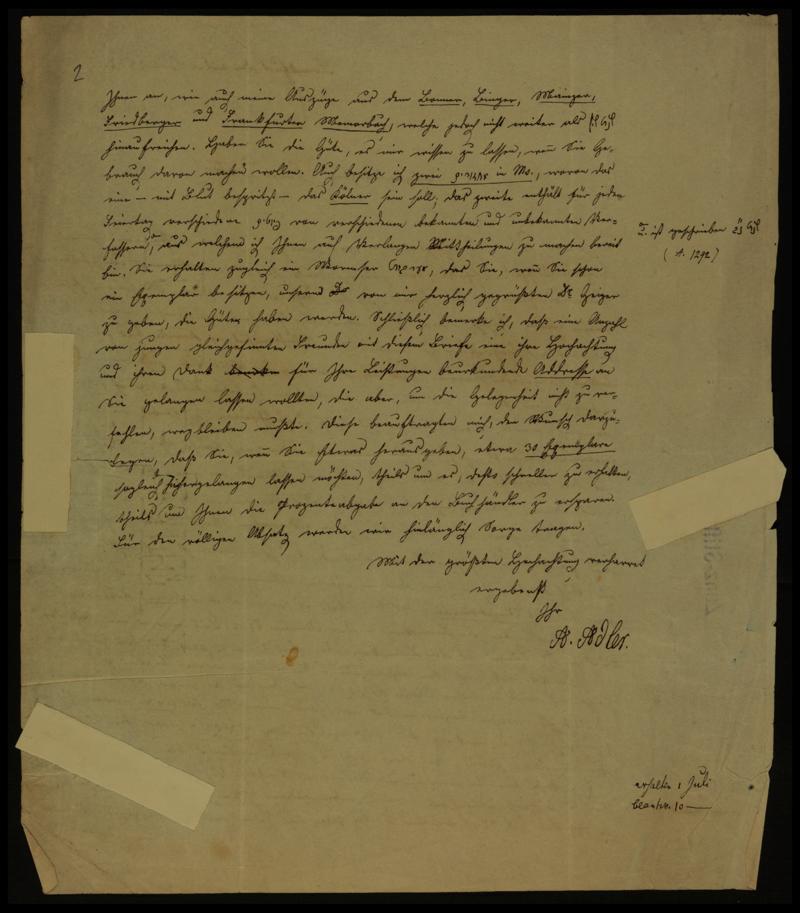 2
Ihnen an, wie auch meine Auszüge aus dem Bonner, Binger, Mainzer,
Friedberger und Frankfurter Memorbuch, welche jedoch nicht weiter als
hinaufreichen. Haben Sie die Güte, es mir wissen zu lassen, wenn Sie Ge-
brauch davon machen wollen. Auch besitze ich zwei מחזורים in Ms., wovon das
eine – mit Blut bespritzt – das Kölner sein soll; das zweite enthält für jeden
Feiertag verschiedene von verschiedenen bekannten und unbekannten Ver-
fassern, aus welchem ich Ihnen auf Verlangen Mittheilungen zu machen bereit
bin. Sie erhalten zugleich ein Wormser, das Sie, wenn Sie schon
ein Exemplar besitzen, unserm von mir herzlich gegrüßten Dr Geiger
zu geben, die Güte haben werden. Schließlich bemerke ich, daß eine Anzahl
von jungen gleichgesinnten Freunden mit diesem Briefe eine ihre Hochachtung
und ihren Dank für Ihre Leistungen beurkundende Addresse an
Sie gelangen lassen wollten, die aber, um die Gelegenheit nicht zu ver-
fehlen, wegbleiben mußte. Diese beauftragten mich, den Wunsch darzu-
legen, daß Sie, wenn Sie Etwas herausgeben, etwa 30 Exemplare
sogleich hierhergelangen lassen möchten, theils um es, desto schneller zu erhalten,
theils um Ihnen die Prozenteabgabe an den Buchhändler zu ersparen.
Für den völligen Absatz werden wir hinlänglich Sorge tragen.
Mit der größten Hochachtung verharret
ergebenst
Ihr
A. Adler.
u. ist geschrieben
(A. 1292)
erhalten 1 Juli
beantw. 10 —